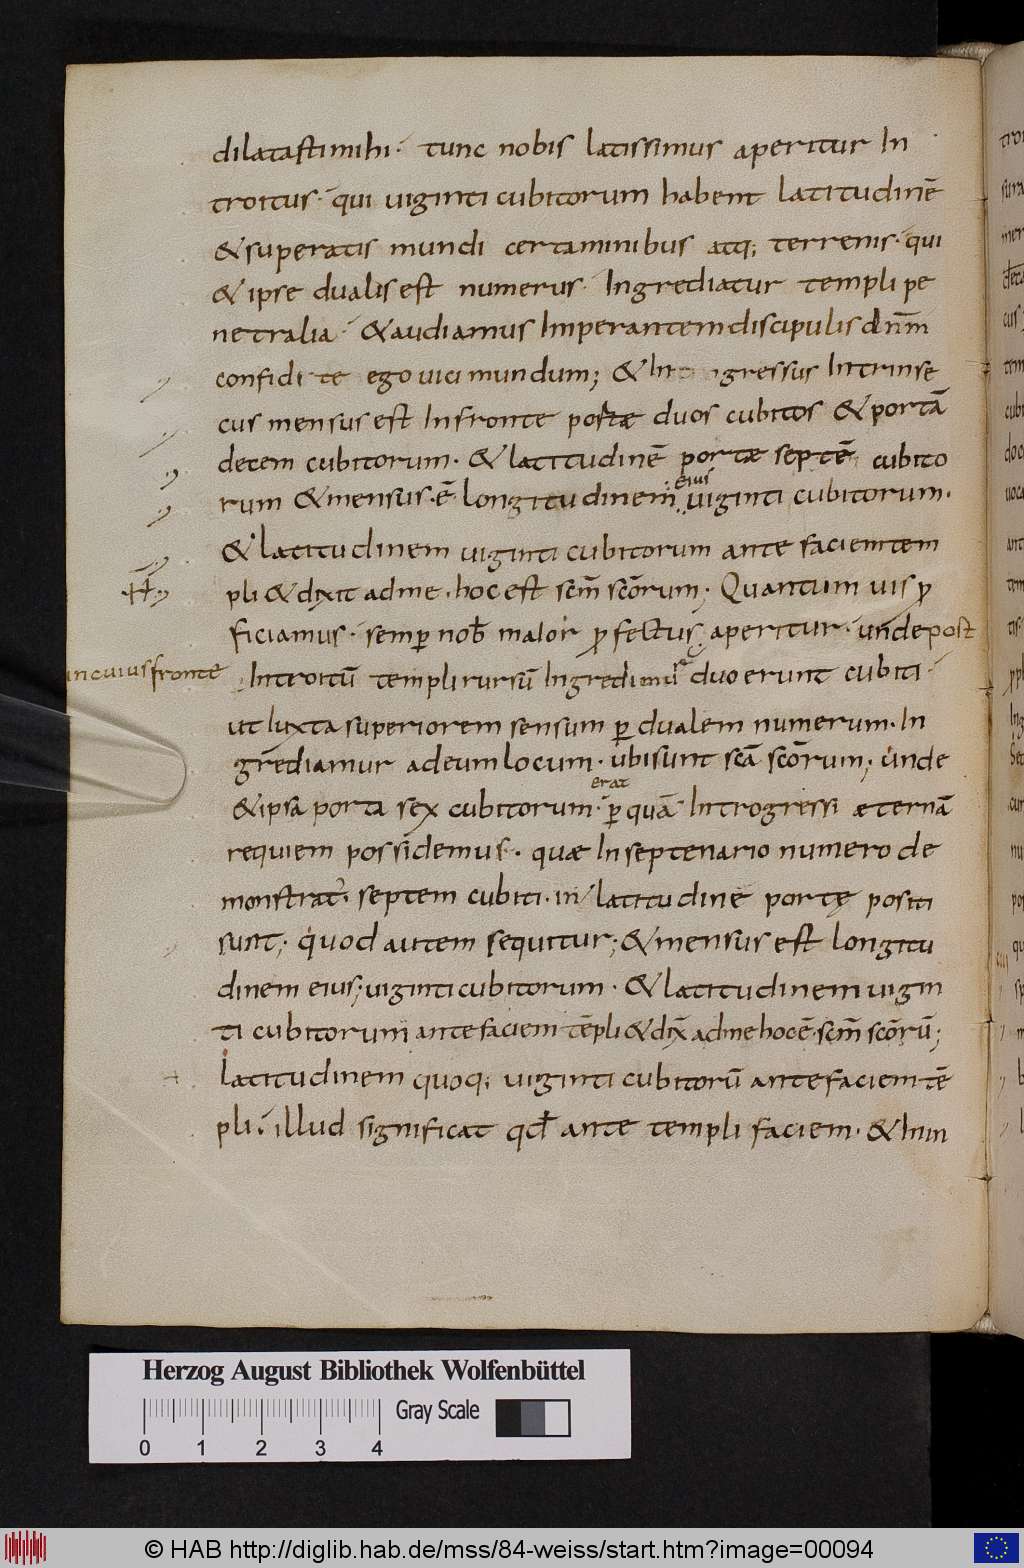 dilatasti mihi· tunc nobis latissimus aperitur In
troitus· qui uiginti cubitorum habent latitudinē
& superatis mundi certaminibus atq; terrenis· qui
& ipse dualis est numerus· Ingrediatur templi pe
netralia· & audiamus Imperantem discipulis dn̄m
confidite ego uici mundum; & Introgressus Intrinse
cus mensus est In fronte postae duos cubitos & portā
decem cubitorum· & latitudinē portae septē cubito
eius
rum & mensus·ē· longitudinem uiginti cubitorum·
& latitudinem uiginti cubitorum ante faciem tem
pli & dixit ad me· hoc est scm̄ scōrum; Quantum uis ꝓ
ficiamus· semꝑ nob̄ maior ꝓfectus aperitur· unde post
in cuius fronte
Introitū templi rursū Ingredi duo erunt cubiti·
ut Iuxta superiorem sensum ꝑ dualem numerum· In
grediamur ad eum locum· ubi sunt scā scōrum; unde
erat
& ipsa porta sex cubitorum· ꝑ quā Introgressi aeternā
requiem possidemus· quae In septenario numero de
monstrat᷒· septem cubiti· in latitudine portę positi
sunt; quod autem sequitur; & mensus est longitu
dinem eius; uiginti cubitorum· & latitudinem uigin
ti cubitorum ante faciem tēpli & dix̄ ad me hoc ē· scm̄ scōrū;
latitudinem quoq; uiginti cubitorū ante faciem tē
pli· illud significat qđ ante templi faciem· & Inin
Herzog August Bibliothek Wolfenbüttel
Gray Scale
0 1 2 3 4
© HAB http://diglib.hab.de/mss/84-weiss/start.htm?image=00094